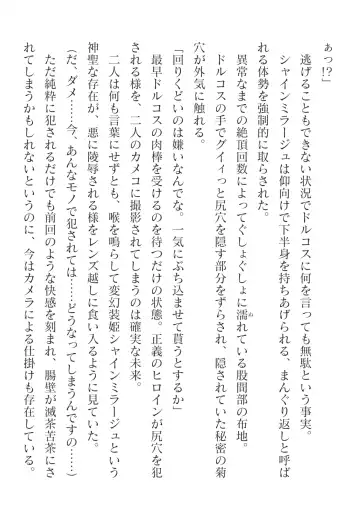 ぁっ!?
　逃げることもできない状況でドルコスに何を言っても無駄という事実。
　シャインミラージュは仰向けで下半身を持ちあげられる、まんぐり返しと呼ば
れる体勢を強制的に取らされた。
　異常なまでの絶頂回数によってぐしょぐしょに濡れている股間部の布地。
　ドルコスの手でグイィっと尻穴を隠す部分をずらされ、隠されていた秘密の菊
穴が外気に触れる。
「回りくどいのは嫌いなんでな。一気にぶち込ませて貰うとするか」
　最早ドルコスの肉棒を受けるのを待つだけの状態。正義のヒロインが尻穴を犯
される様を、二人のカメコに撮影されてしまうのは確実な未来。
　二人は何も言葉にせずとも、喉を鳴らして変幻装姫シャインミラージュという
神聖な存在が、悪に陵辱される様をレンズ越しに食い入るように見ていた。
（だ、ダメ……今、あんなモノで犯されては……どうなってしまうんですの……）
　ただ純粋に犯されるだけでも前回のような快感を刻まれ、腸壁が滅茶苦茶にさ
れてしまうかもしれないというのに、今はカメラによる仕掛けも存在している。